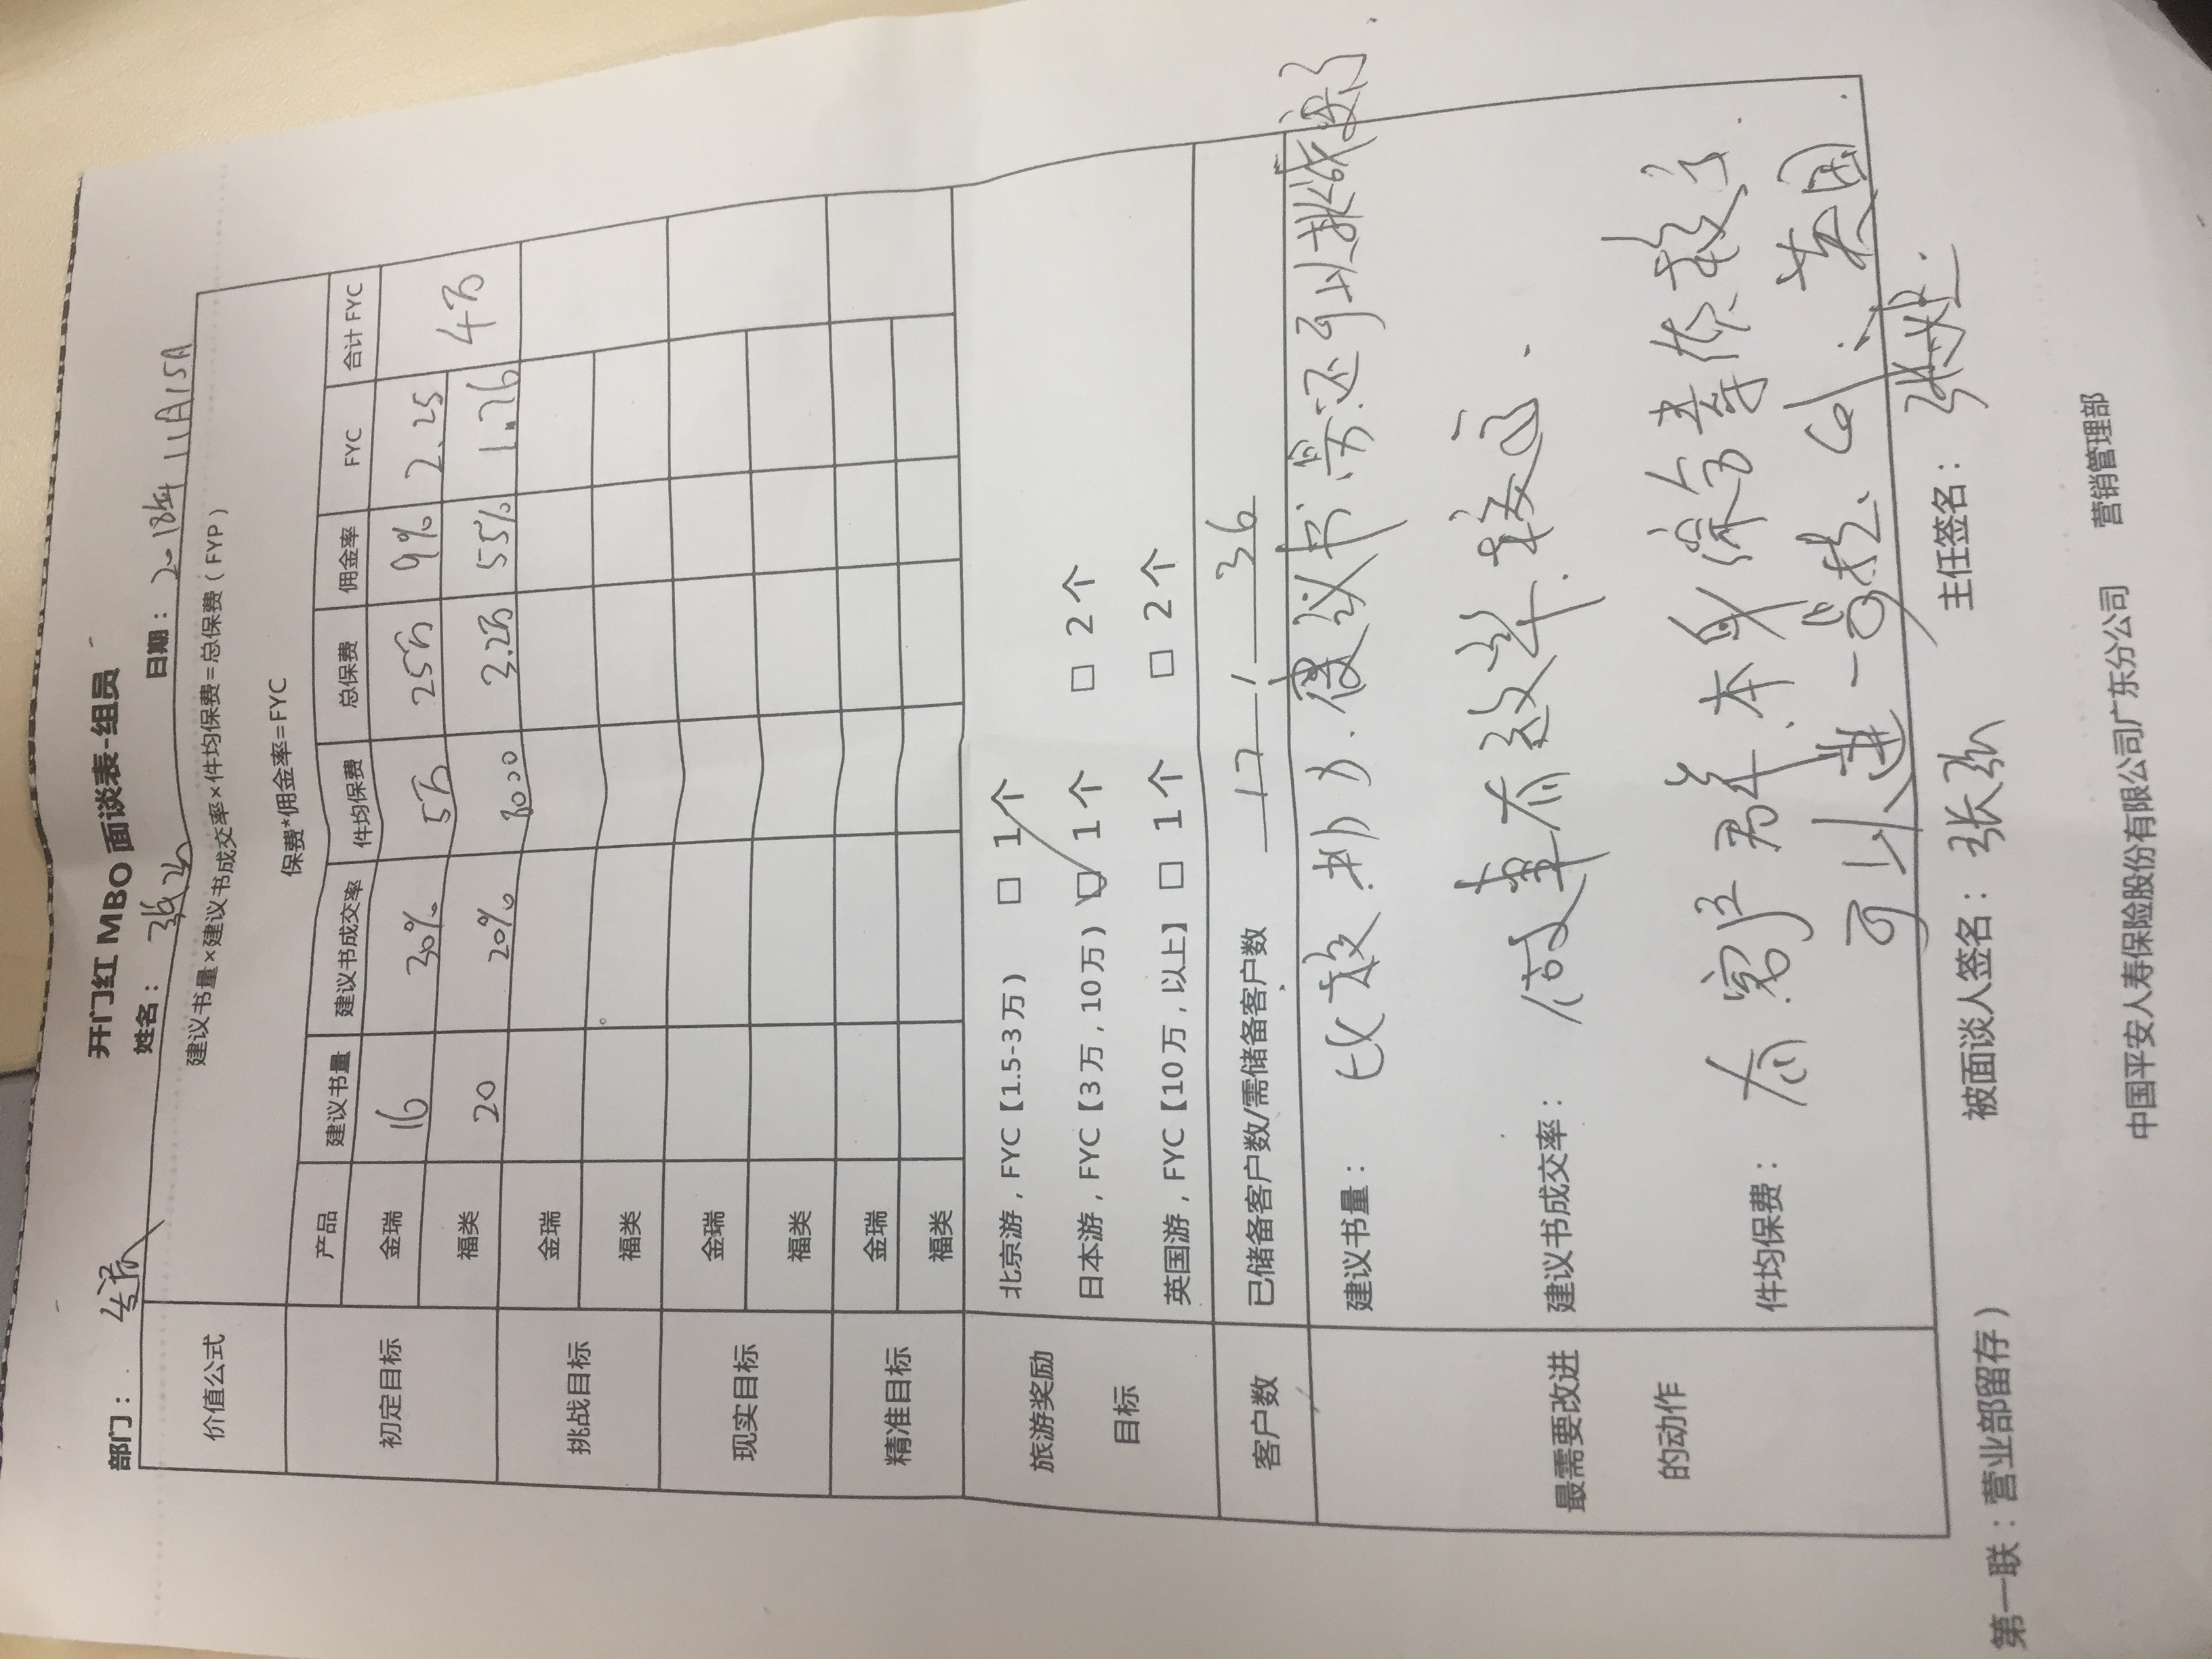 开门红 MBO 面谈表-组员
部门： 姓名： 张 日期：2018年11月15日
价值公式 建议书量×建议书成交率×件均保费=总保费（FYP）
保费*佣金率=FYC
产品 建议书量 建议书成交率 件均保费 总保费 佣金率 FYC 合计 FYC
初定目标 金瑞 16 30% 5万 25万 9% 2.25 4万
福类 20 20% 8000 3.2万 55% 1.76
挑战目标 金瑞
福类
现实目标 金瑞
福类
精准目标 金瑞
福类
旅游奖励目标 北京游，FYC【1.5-3万） □ 1个
日本游，FYC【3万，10万） ☑ 1个 □ 2个
英国游，FYC【10万，以上】 □ 1个 □ 2个
客户数 已储备客户数/需储备客户数 17 / 36
最需要改进的动作 建议书量： 比较努力. 建议书 还可以
建议书成交率： 成交率 较
件均保费： 有客户群. 本身综合素质较
可以进一步 英国
被面谈人签名： 张 主任签名： 张
第一联：营业部留存） 中国平安人寿保险股份有限公司广东分公司 营销管理部